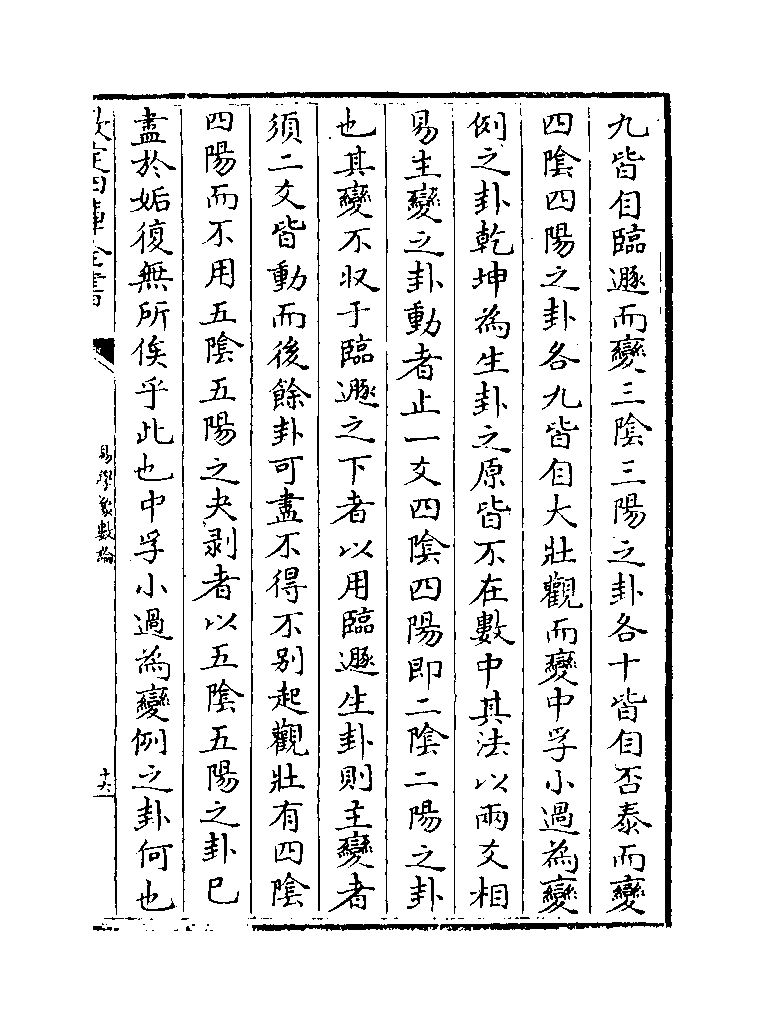 九皆自臨遯而變三陰三陽之卦各十皆自否泰而變
四陰四陽之卦各九皆自大壯觀而變中孚小過為變
例之卦乾坤為生卦之原皆不在數中其法以兩爻相
易主變之卦動者止一爻四陰四陽即二陰二陽之卦
也其變不収于臨遯之下者以用臨遯生卦則主變者
須二爻皆動而後餘卦可盡不得不别起觀壯有四陰
四陽而不用五陰五陽之夬剥者以五陰五陽之卦已
盡於姤復無所俟乎此也中孚小過為變例之卦何也
欽定四庫全書
易學象數論
十六